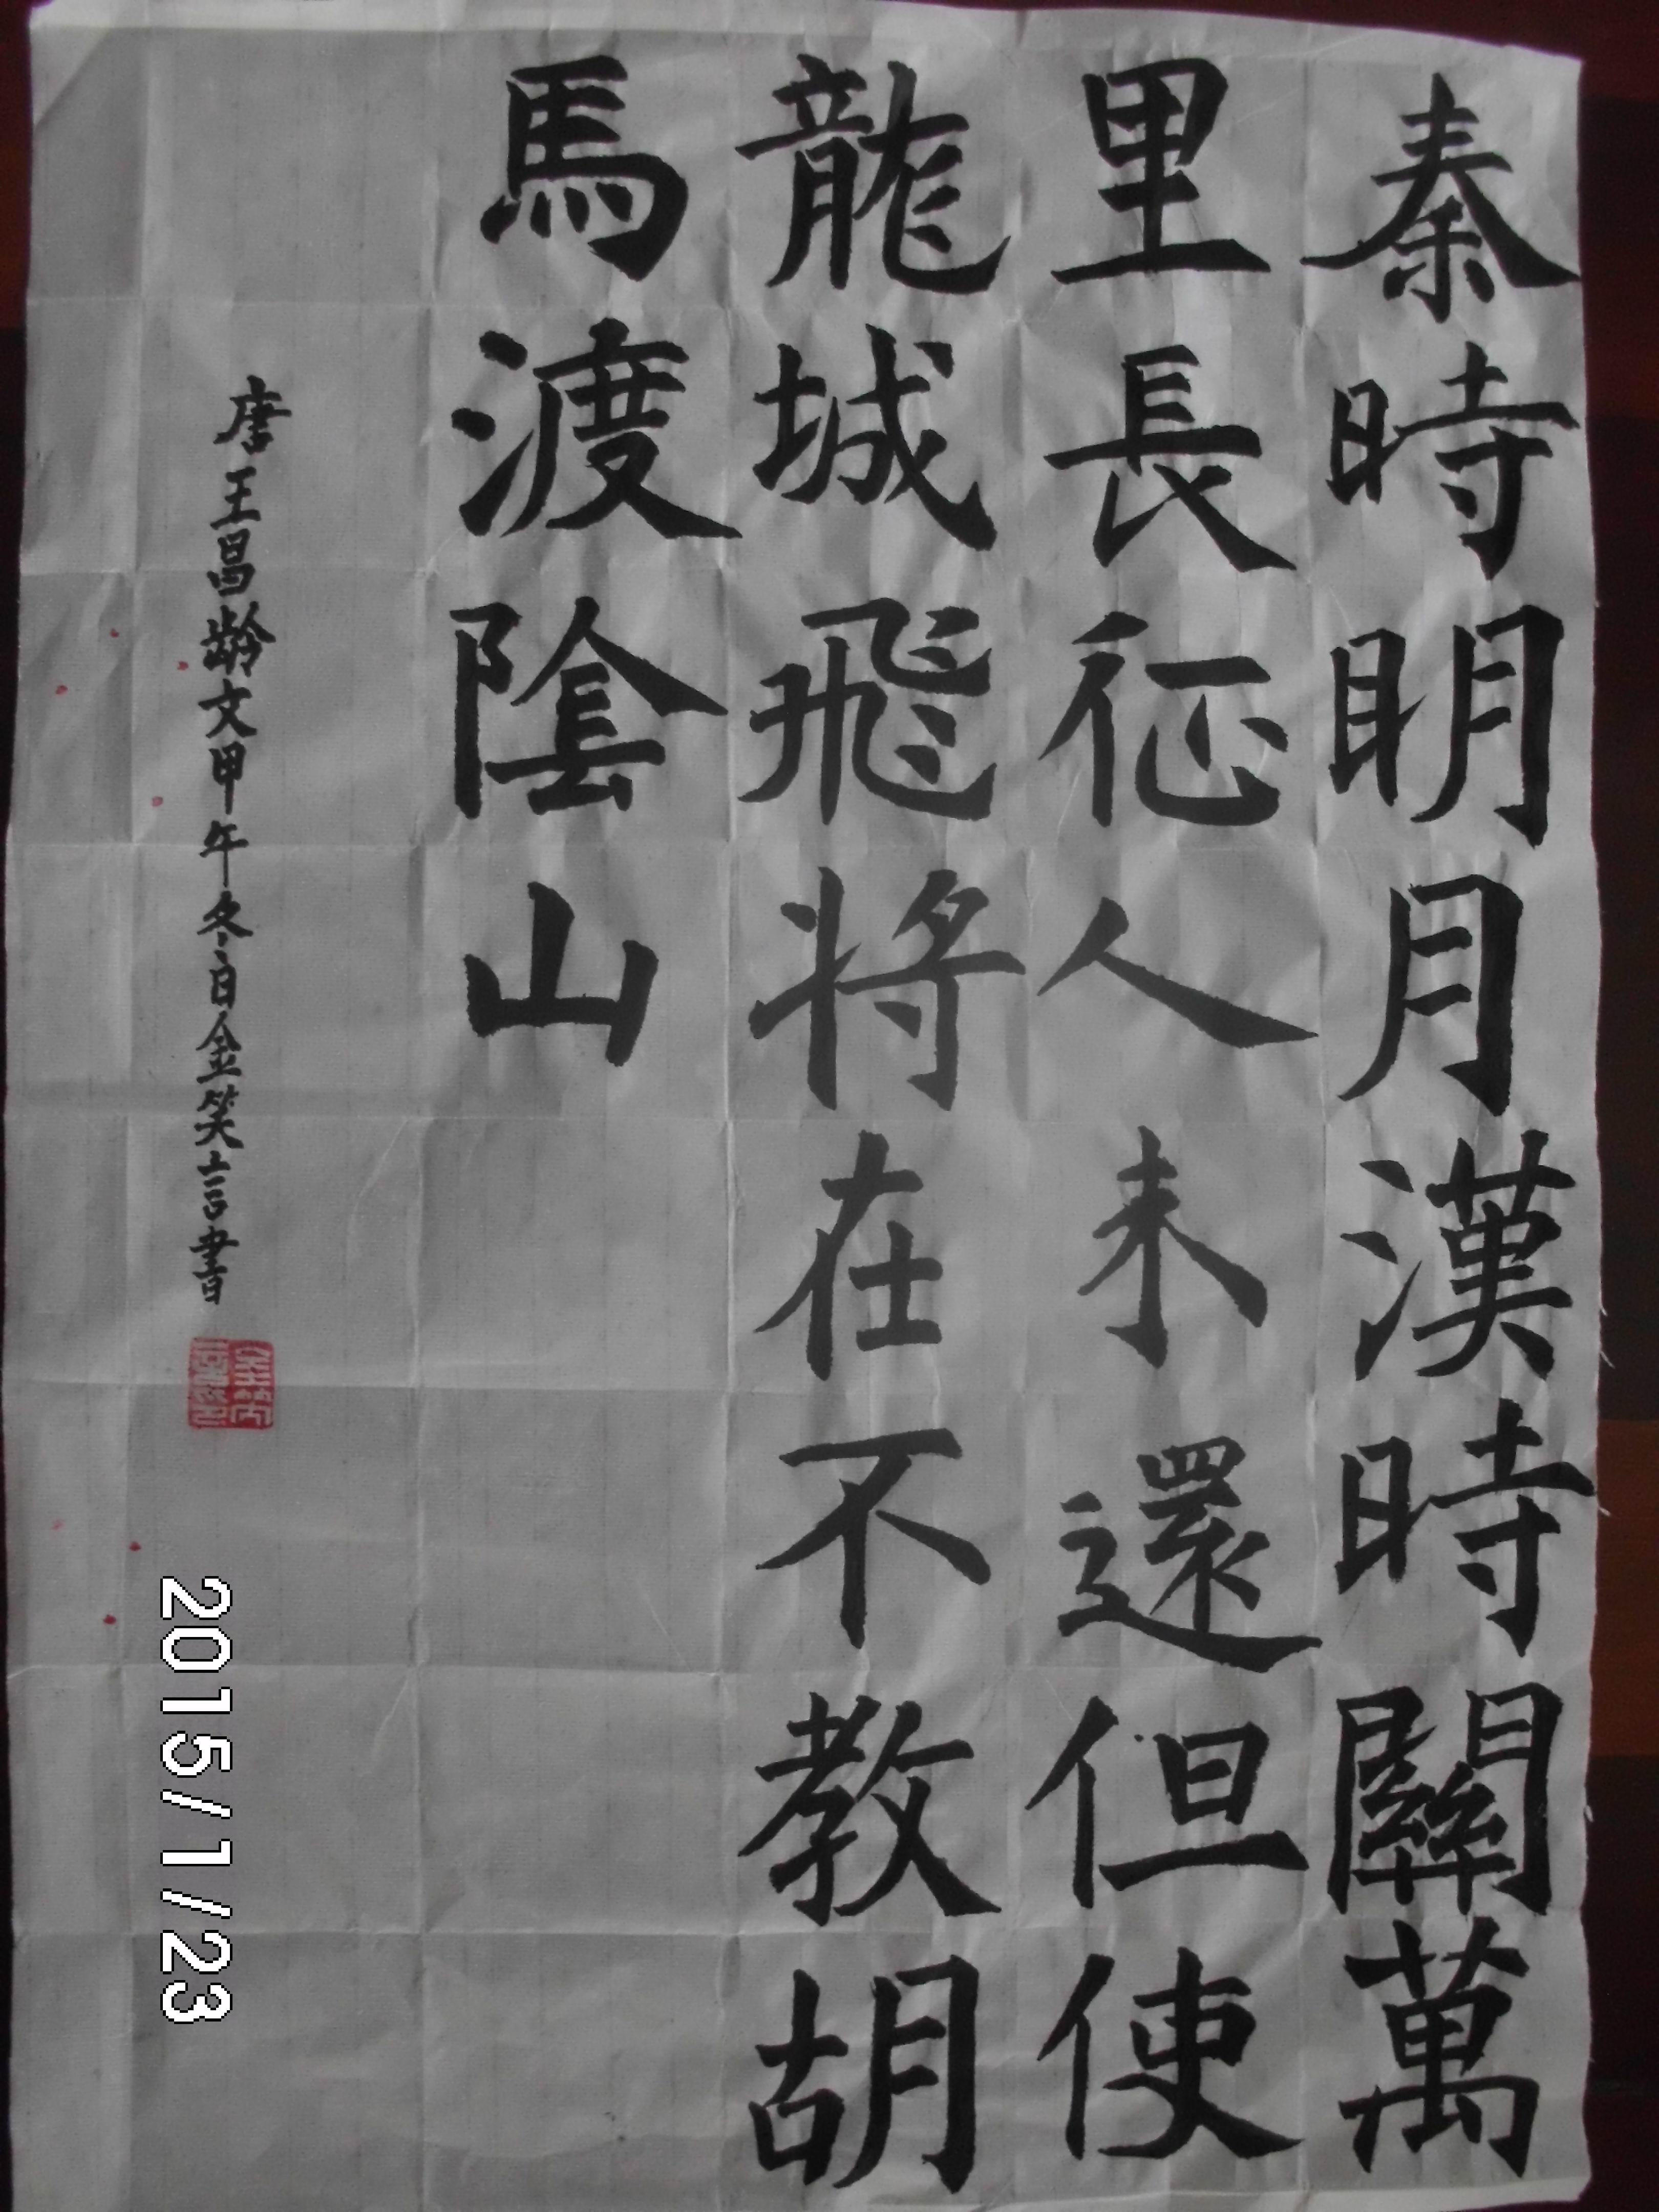 秦時明月漢時關萬
里長征人未還但使
龍城飛將在不教胡
馬渡陰山
唐王昌齡文甲午冬白金笑言書
金笑言印
2015/1/23